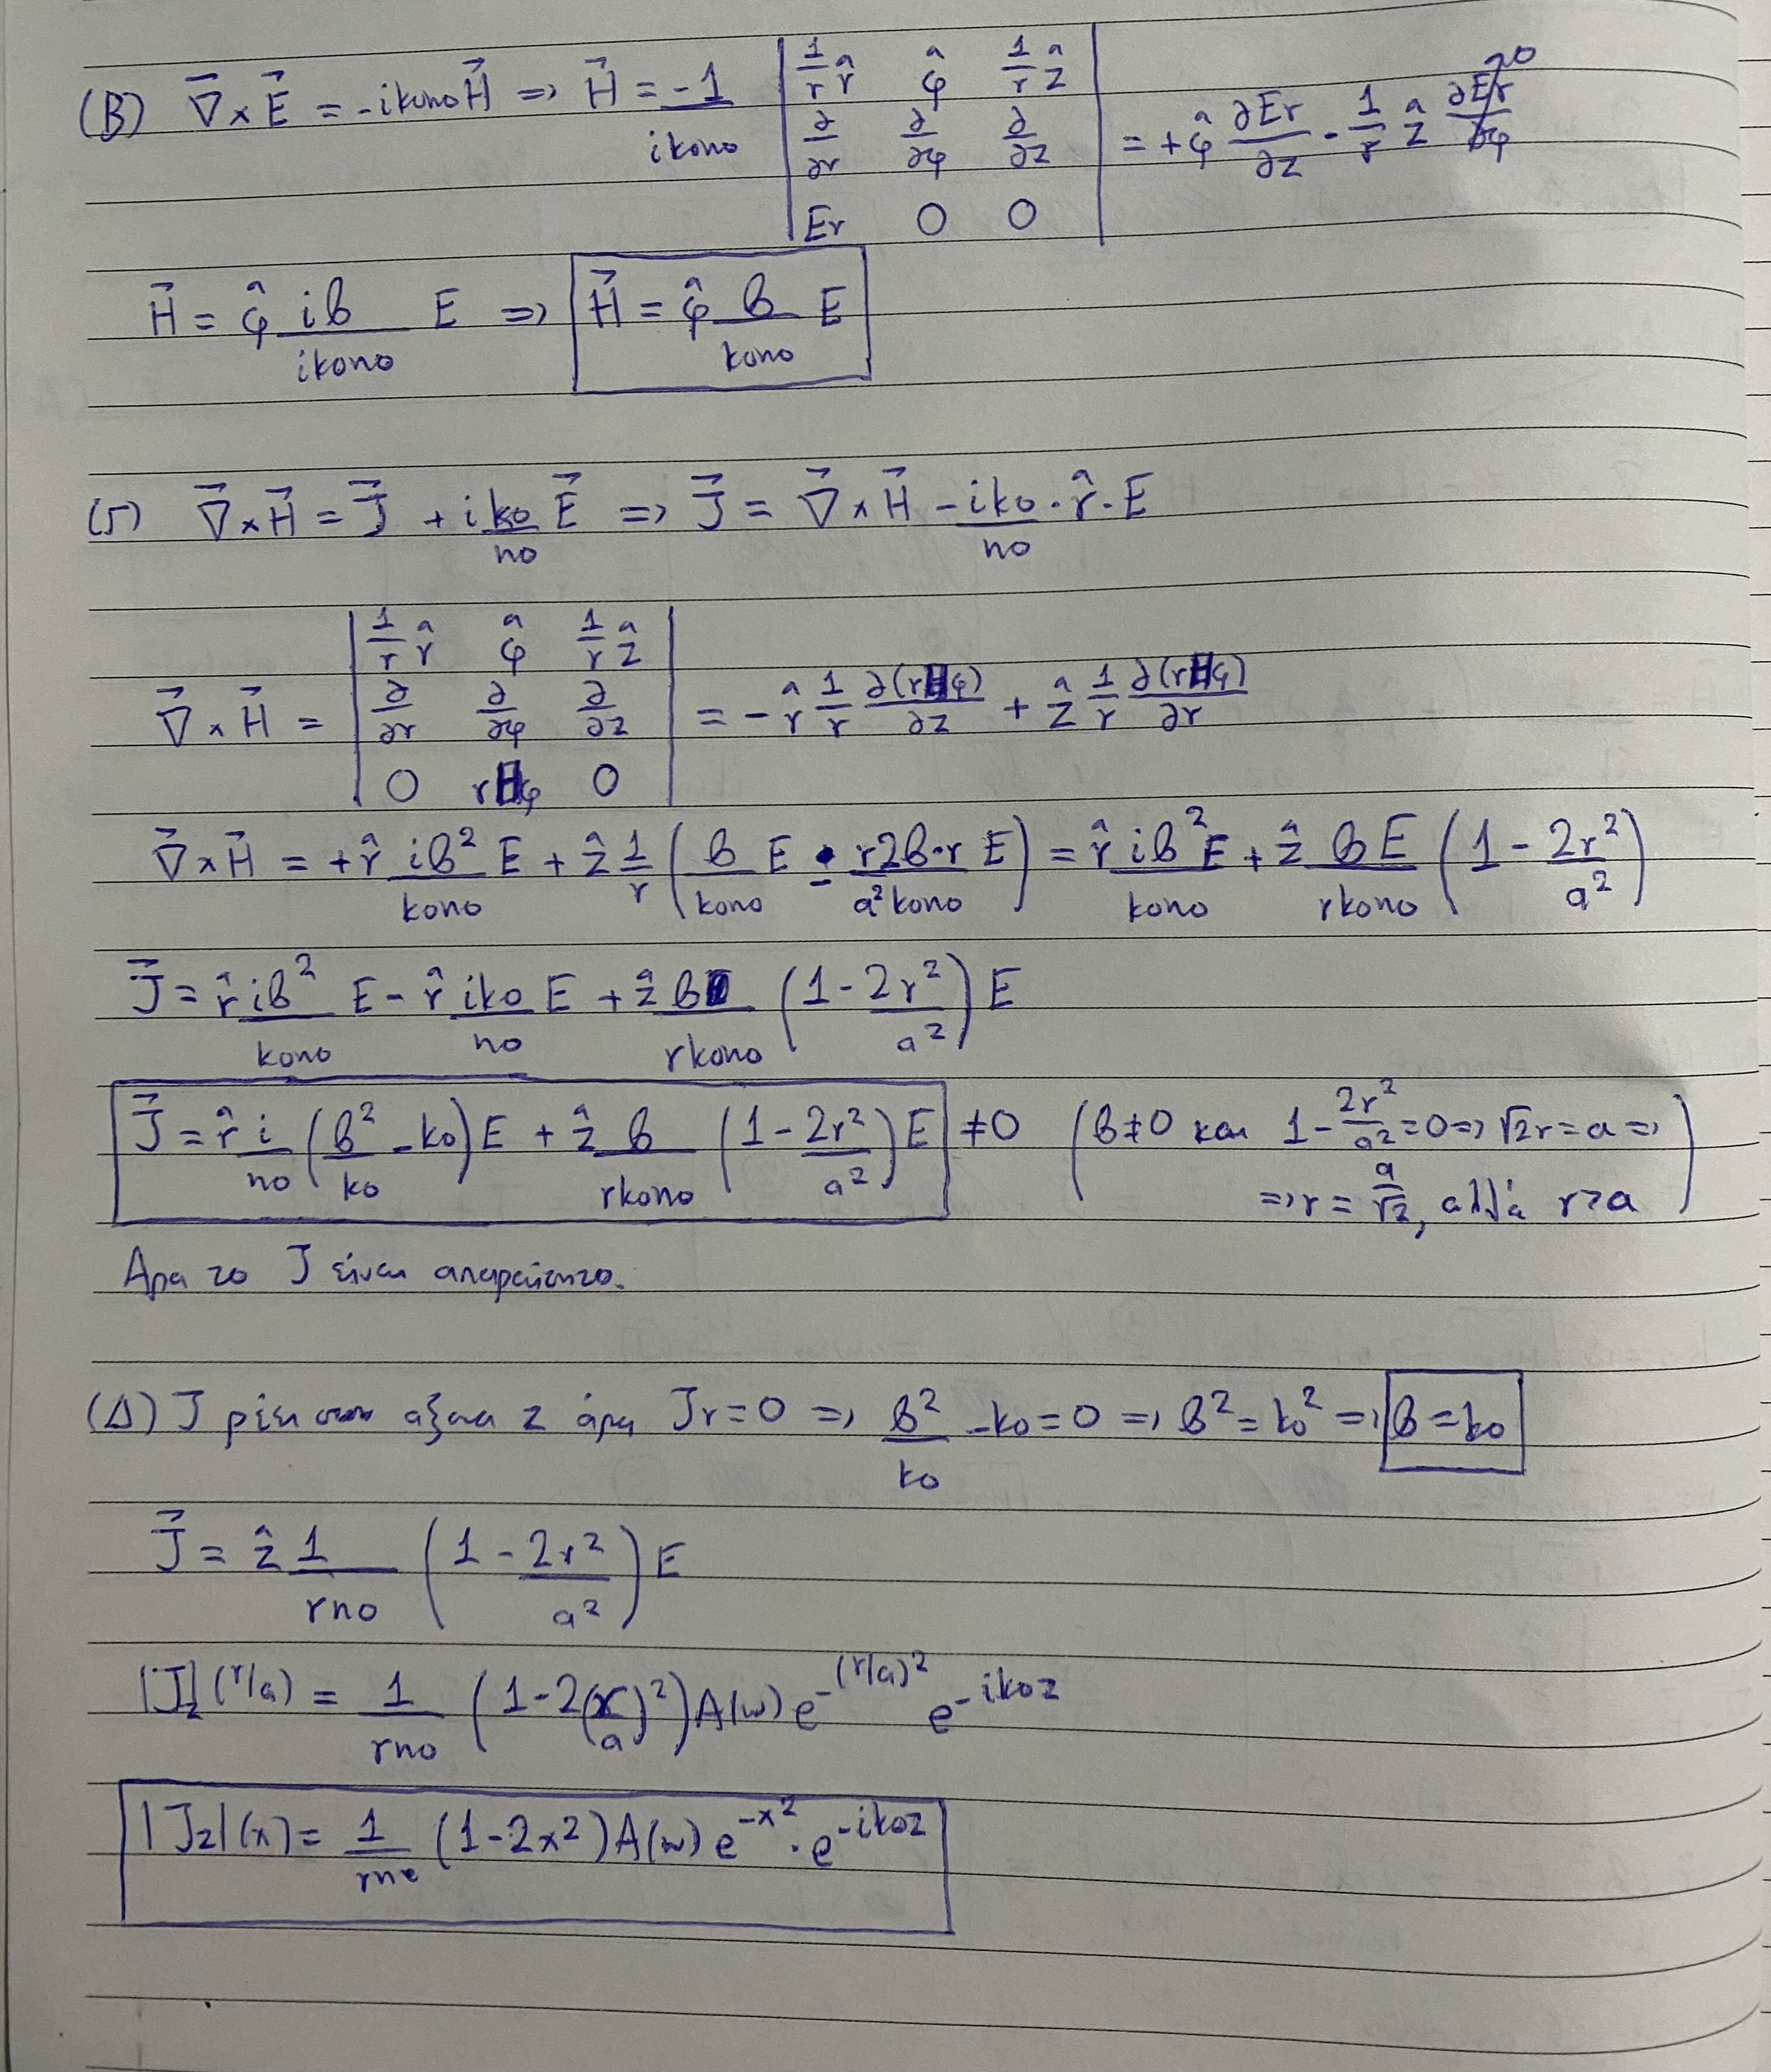 (B) ∇⃗×E⃗ = -ikonoH⃗ => H⃗ = -1/ikono |1/r r̂ φ̂ 1/r ẑ; ∂/∂r ∂/∂φ ∂/∂z; Er 0 0| = +φ̂ ∂Er/∂z - 1/r ẑ ∂Er/∂φ →0
H⃗ = φ̂ iβ/ikono E => H⃗ = φ̂ β/kono E
(Γ) ∇⃗×H⃗ = J⃗ + iko/no E⃗ => J⃗ = ∇⃗×H⃗ - iko/no · r̂ · E
∇⃗×H⃗ = |1/r r̂ φ̂ 1/r ẑ; ∂/∂r ∂/∂φ ∂/∂z; 0 rHφ 0| = -r̂ 1/r ∂(rHφ)/∂z + ẑ 1/r ∂(rHφ)/∂r
∇⃗×H⃗ = +r̂ iβ²/kono E + ẑ 1/r (β/kono E - r2β·r/a²kono E) = r̂ iβ²/kono E + ẑ βE/rkono (1 - 2r²/a²)
J⃗ = r̂ iβ²/kono E - r̂ iko/no E + ẑ β/rkono (1 - 2r²/a²) E
J⃗ = r̂ i/no (β²/ko - ko) E + ẑ β/rkono (1 - 2r²/a²) E ≠0 (β≠0 και 1 - 2r²/a² = 0 => √2r = a =>
=> r = a/√2, αλλά r>a)
Αρα το J είναι απαραίτητο.
(Δ) J ρέει στον αξονα z άρα Jr=0 => β²/ko - ko = 0 => β² = ko² => β = ko
J⃗ = ẑ 1/rno (1 - 2r²/a²) E
|J|z (r/a) = 1/rno (1 - 2(r/a)²) A(ω) e^-(r/a)² e^-ikoz
|Jz|(x) = 1/rno (1-2x²) A(ω) e^-x² · e^-ikoz